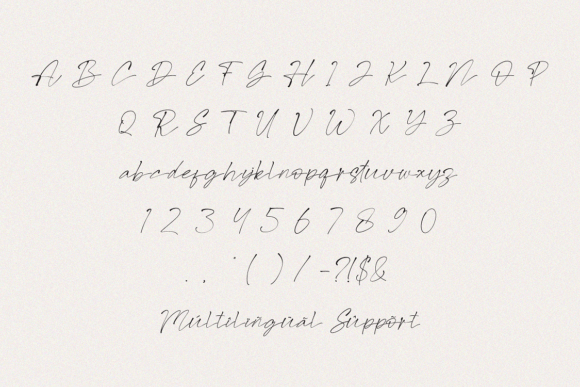 A B C D E F G H I J K L N O P
Q R S T U V W X Y Z
abcdefghijklnopqrstuvwxyz
1 2 3 4 5 6 7 8 9 0
. , ' ( ) / -?!$&
Múltilingüal Süppört